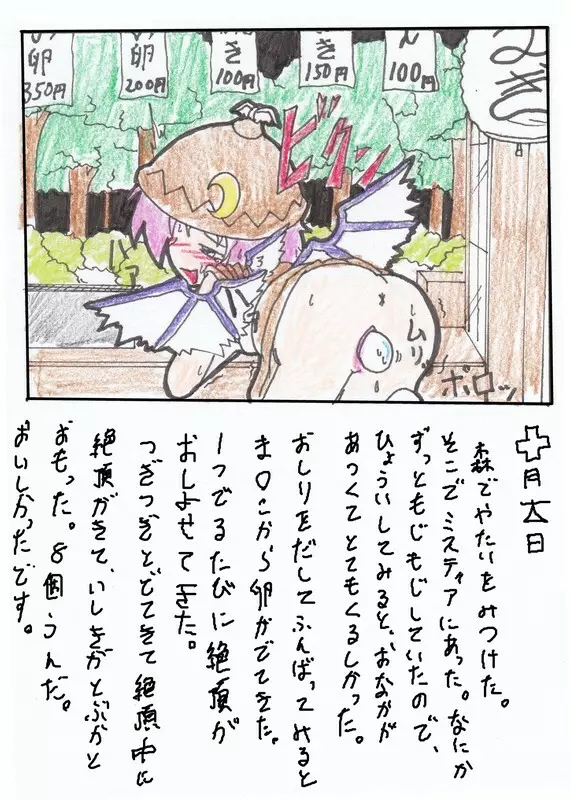 卵
350円
卵
200円
き
100円
き
150円
ん
100円
なぎ
ビクンッ
ハァ
ムリッ
ボロッ
十月六日
森でやたいをみつけた。
そこでミスティアにあった。なにか
ずっともじもじしていたので、
ひょういしてみると、おなかが
あつくてとてもくるしかった。
おしりをだしてふんばってみると
ま〇こから卵がでてきた。
1つでるたびに絶頂が
おしよせてきた。
つぎつぎとでてきて絶頂中に
絶頂がきて、いしきがとぶかと
おもった。8個うんだ。
おいしかったです。